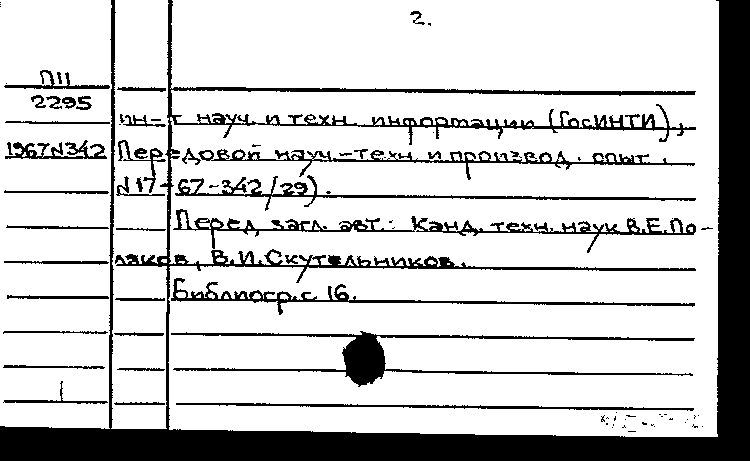 2.
П11
2295
ин-т науч. и техн. информации (ГосИНТИ),
1967N342 Передовой науч.-техн. и производ. опыт.
N17-67-342/29).
Перед загл. авт.: Канд. техн. наук В.Е.По-
ляков, В.И.Скутельников.
Библиогр.с 16.